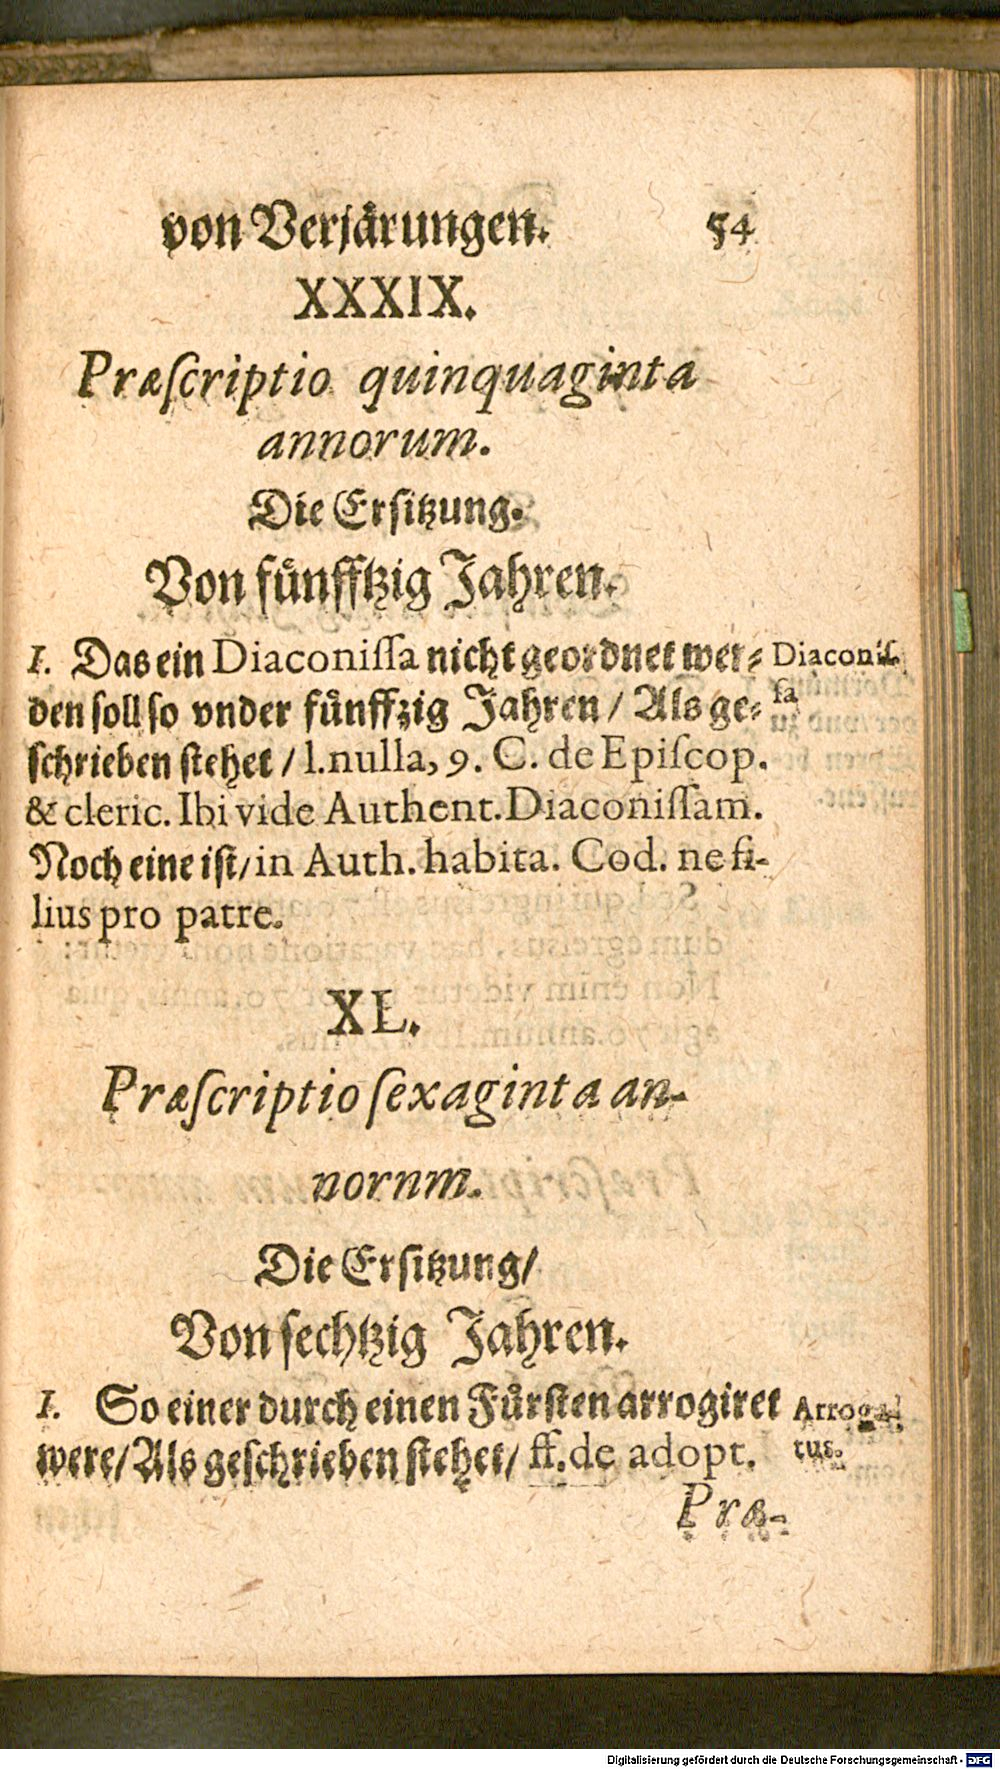 von Verjårungen. 54
XXXIX.
Præſcriptio quinquaginta
annorum.
Die Erſitzung.
Von fůnfftzig Jahren.
1. Das ein Diaconiſſa nicht geordnet wer⸗
Diaconiſ-
ſa
den ſoll ſo vnder fůnffzig Jahren / Als ge⸗
ſchrieben ſtehet / l. nulla, 9. C. de Epiſcop.
& cleric. Ibi vide Authent. Diaconiſſam.
Noch eine iſt / in Auth. habita. Cod. ne fi-
lius pro patre.
XL.
Præſcriptio ſexaginta an-
nornm.
Die Erſitzung /
Von ſechtzig Jahren.
1. So einer durch einen Fůrſten arrogiret
Arroga-
tus.
were / Als geſchrieben ſtehet / ff. de adopt.
Præ-
Digitalisierung gefördert durch die Deutsche Forschungsgemeinschaft - DFG